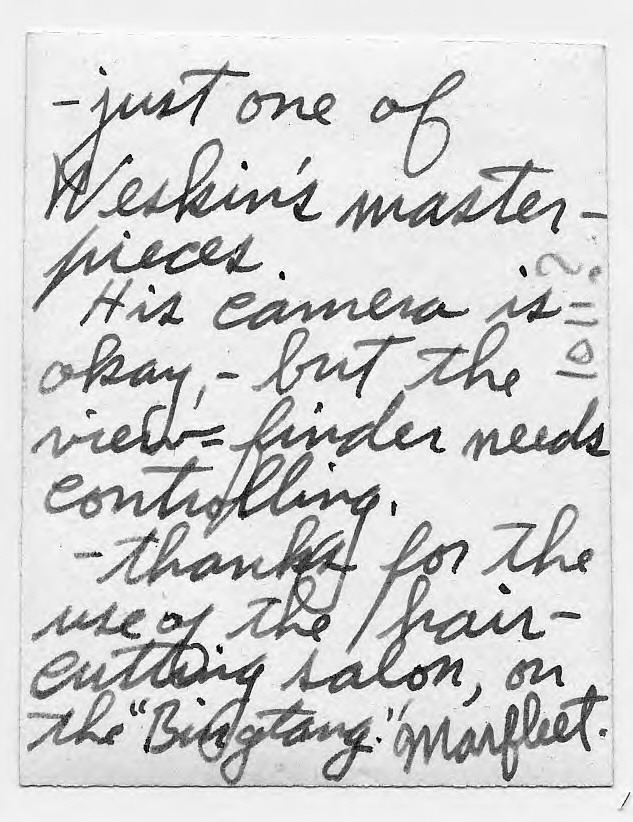 - just one of
Weskin's master-
pieces
His camera is
okay, - but the
view=finder needs
controlling.
- thanks for the
use of the hair-
cutting salon, on
the "Bingtang."
Marfleet.
1011.2